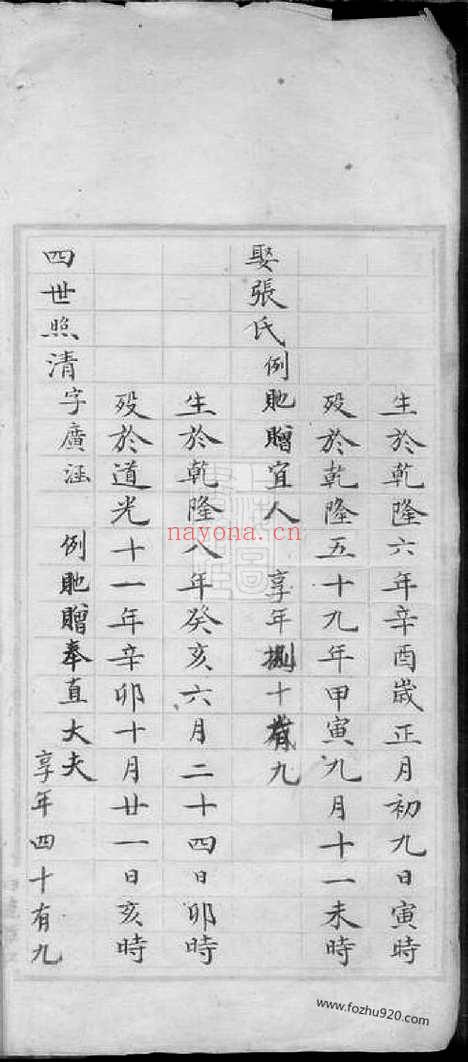 生於乾隆六年辛酉歲正月初九日寅時
歿於乾隆五十九年甲寅九月十一未時
娶張氏 例貤贈宜人 享年捌十有九
生於乾隆八年癸亥六月二十四日卯時
歿於道光十一年辛卯十月廿一日亥時
四世照清字廣涵 例貤贈奉直大夫 享年四十有九
nayona.cn
www.fozhu920.com